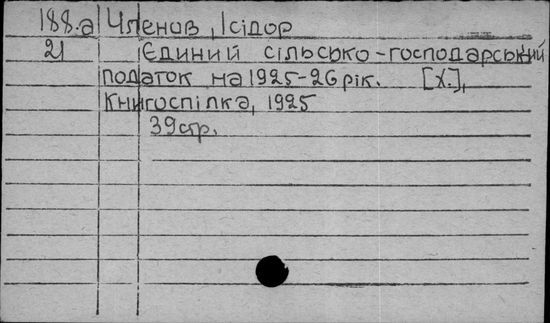 188.а Членов, Ісідор
21 Єдиний сільсько-господарський
податок на 1925-26 рік. [Х.],
Книгоспілка, 1925
39 стр.